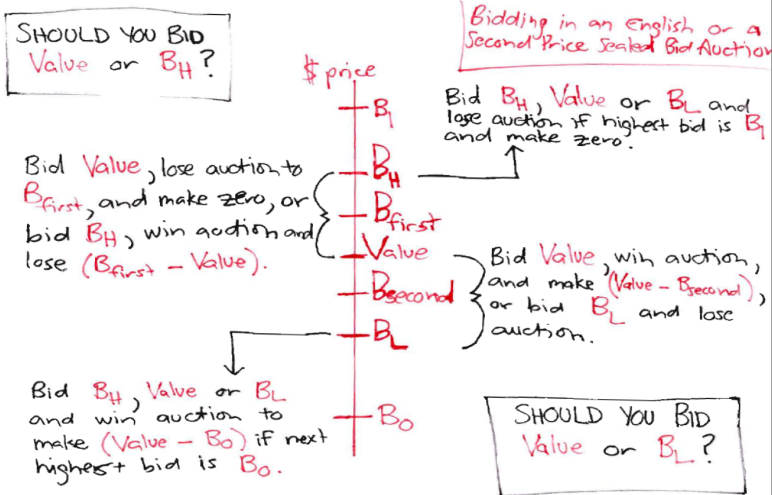 SHOULD YOU BID
Value or B_H?
Bidding in an English or a
Second Price Sealed Bid Auction
$ price
B_1
Bid B_H, Value or B_L and
lose auction if highest bid is B_1
and make zero.
B_H
Bid Value, lose auction to
B_first, and make zero, or
bid B_H, win auction and
lose (B_first - Value).
B_first
Value
Bid Value, win auction,
and make (Value - B_second),
or bid B_L and lose
auction.
B_second
B_L
Bid B_H, Value or B_L
and win auction to
make (Value - B_0) if next
highest bid is B_0.
B_0
SHOULD YOU BID
Value or B_L?